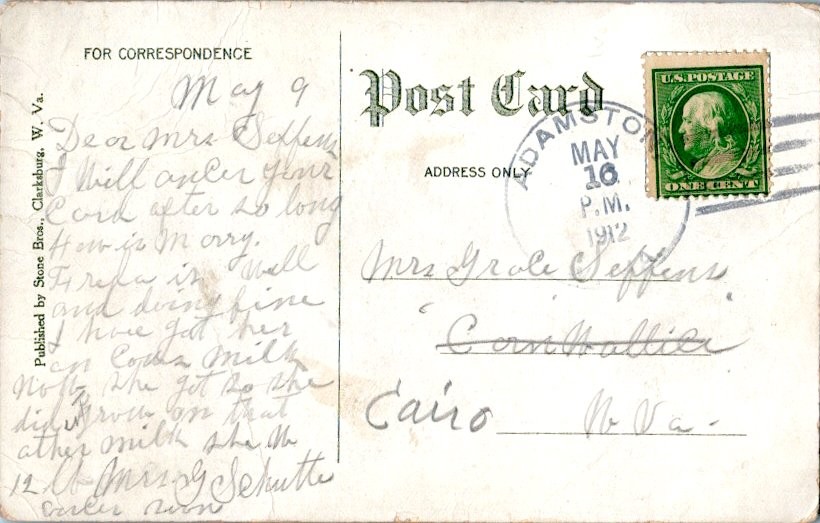 FOR CORRESPONDENCE
May 9
Dear Mrs Seffens
I Will ancer your
Card after so long
How is Morry.
Freda is Well
and doing fine
I have got her
on Cows Milk
Now she got so she
din grow on that
other milk she
12 lb Mrs G Schutte
ancer soon
Published by Stone Bros., Clarksburg, W. Va.
Post Card
ADDRESS ONLY
ADAMSTON
MAY
16
P.M.
1912
U.S. POSTAGE
ONE CENT
Mrs Grace Seffens
CornWallice
Cairo W Va.